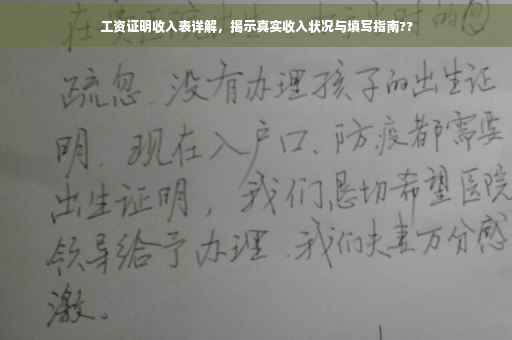 工资证明收入表详解，揭示真实收入状况与填写指南??
疏忽、没有办理孩子的出生证
明、现在入户口、防疫都需要
出生证明，我们恳切希望医院
领导给予办理、我们夫妻万分感
激。